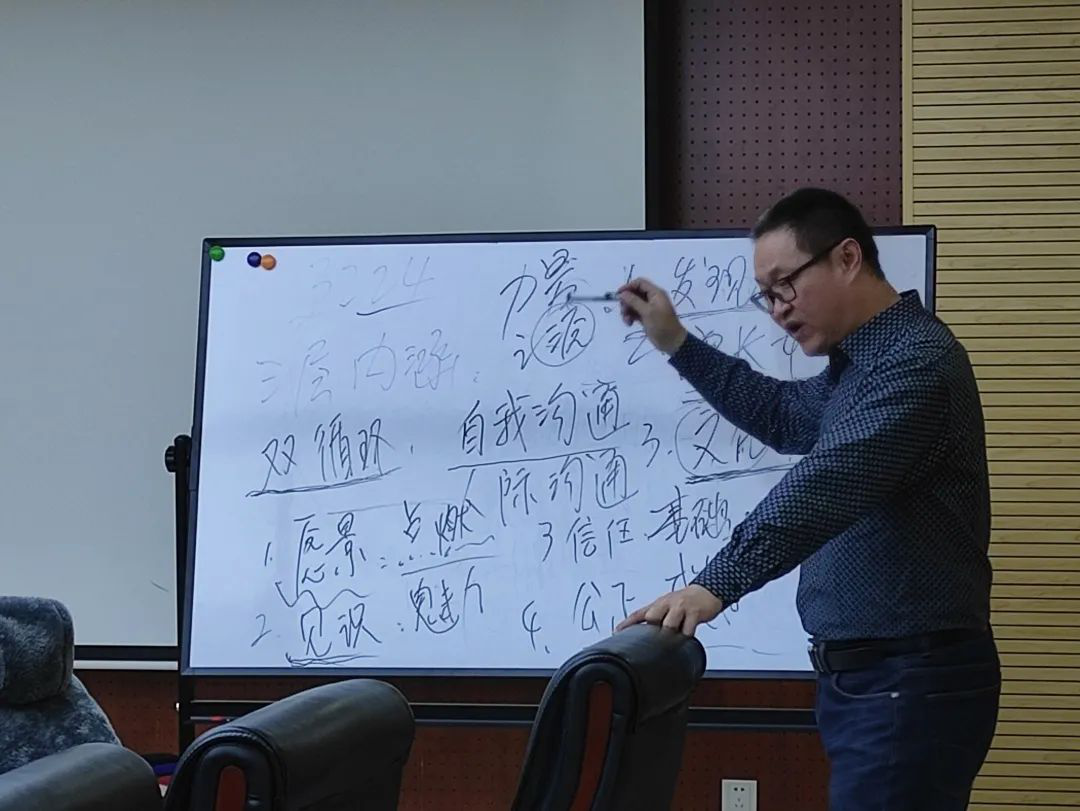 3224
力量 发现
三层内涵: 源
双循环. 自我沟通 3. 文化
人际沟通
1. 愿景: 点燃 3 信任 基础
2. 见识: 魅力 4. 公